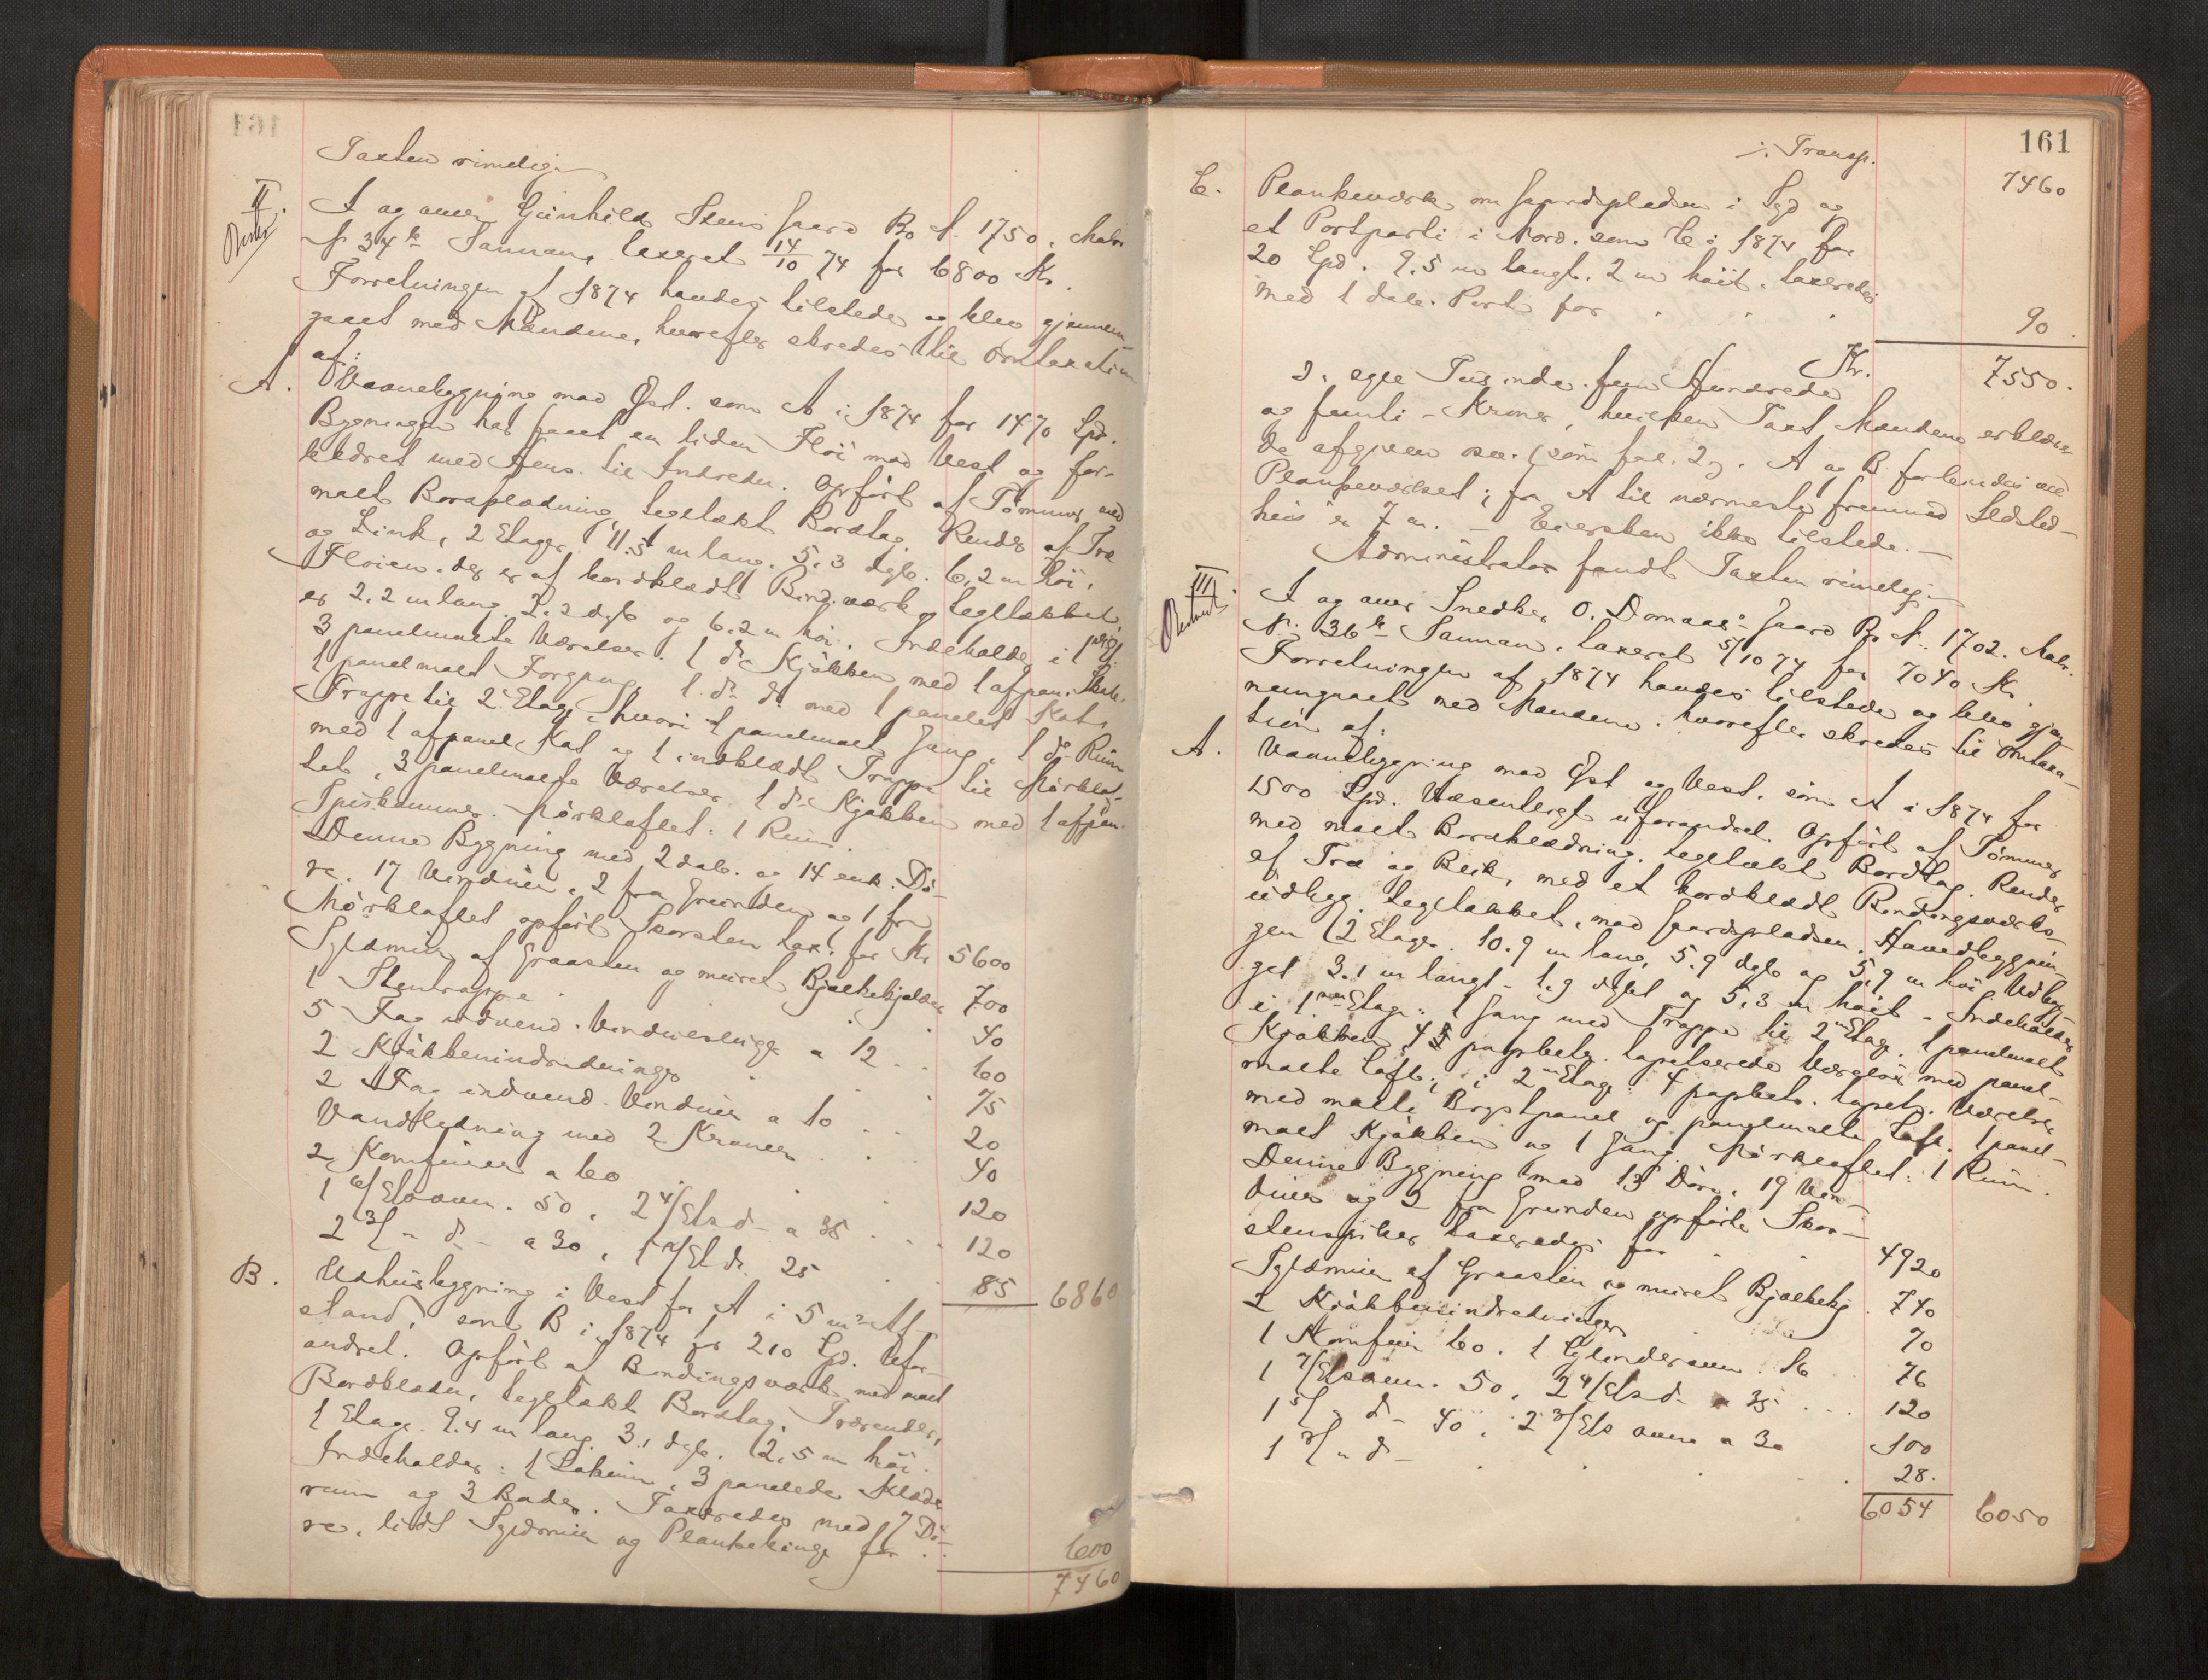 Taxten rimelig.
II. A og anm. Gunhild Stens Gaard Bo N. 1750. Matr.
N. 34 k Sannan, taxeret 14/10 74 for 6800 Kr.
Forretningen af 1874 havdes tilstede og blev gjennem-
gaaet med Mændene, hvorefter skredes til Omtaxation
af:
A. Vaanebygning mod Øst. som A i 1874 for 1470 Spd.
Bygningen har faaet en liden Fløi mod Vest og for-
andret med Hens. til Indreden. Opført af Tømmer med
malt Bordklædning, tegltækt Bordtag. Render af Træ
og Zink, 2 Etager, 11.5 m lang. 5.3 dyb. 6.2 m høi.
Fløien, der er af bordklædt Bind.værk og tegltækket,
er 2.2 m lang. 2.2 dyb og 6.2 m høi. Indeholder i 1ste Etg:
3 panelmalte Værelser. 1 do Kjøkken med 1 afpan.
1 panelmalt Forgang, 1. do do med 1 panelet Kot,
Trappe til 2 Etag, hvori 1 panelmalt Gang, 1 do Rum
med 1 afpanel Kot og 1 indklædt Trappe til Mørklof-
tet, 3 panelmalte Værelser 1 do Kjøkken med 1 afpan.
Spiskammer. Mørkloftet: 1 Rum.
Denne Bygning med 2 dob. og 14 enk. Dø-
re. 17 Vinduer, 2 fra Grunden og 1 fra
Mørkloftet opført Skorsten tax. for Kr 5600
Syldmur af Graasten og muret Bjælkekjelder 700
1 Stentrappe . 40
5 Fag udvend. Vinduesluger a 12 . . 60
2 Kjøkkenindredninger . 75
2 Fag indvend. Vinduer a 10 . . 20
Vandledning med 2 Kraner . . 40
2 Komfurer a 60 . 120
1 6/Etsovn. 50, 2 4/Ets do a 35 . . . 120
2 3/ " do - a 30, 1 2/Et do. 25 . . 85 6860
B. Udhusbygning i Vest for A i 5 m Af-
stand, som B i 1874 for 210 Spd. Ufor-
andret. Opført af Bindingsværk med malt
Bordklædn, tegltækt Bordtag, Trærender,
1 Etage. 9.4 m lang 3.1 dyb. 2.5 m høi.
Indeholder: 1 Lokum, 3 panelede Klæde
rum og 3 Boder. Taxeredes med 7 Dø-
re, lidt Syldmur og Plankehinge for . 600
7460
161
./. Transp. 7460
C. Plankeværk om Gaardspladsen i Syd og
et Portparti i Nord. som C i 1874 for
20 Spd. 9.5 m langt. 2 m høit, taxeredes
med 1 dob. Port for . . . 90.
Kr. 7550.
2: syv Tusinde fem Hundrede
og femti - Kroner, hvilken Taxt Mændene erklære-
de afgiven osv. (som fol. 2). A og B forbindes ved
Plankeværket; fra A til nærmeste fremmed Ildsted-
hus er 7 m. - Eiersken ikke tilstede. -
Administrator fandt Taxten rimelig. -
III. A og anm. Snedker O. Domaas' Gaard Bo N. 1702. Matr.
N. 36 k Sannan, taxeret 5/10 74 for 7040 Kr.
Forretningen af 1874 havdes tilstede og blev gjen-
nemgaaet med Mændene, hvorefter skredes til Omtaxa-
tion af:
A. Vaanebygning mod Øst og Vest, som A i 1874 for
1500 Spd. Væsentligst uforandret. Opført af Tømmer
med malt Bordklædning, tegltækt Bordtag. Render
af Træ og Blik, med et bordklædt Bindingsværks-
udbyg. tegltækket, mod Gaardspladsen. Hovedbygnin-
gen 2 Etager. 10.9 m lang, 5.9 dyb og 5.9 m høi Udbyg-
get 3.1 m langt - 1.9 dybt og 5.3 m høit - Indeholder
i 1ste Etage: 1 Gang med Trappe til 2 Etag. 1 panelmalt
Kjøkken, 4 papbetr. tapetserede Værelser med panel-
malte Loft; i 2 Etag: 4 papbetr. tapets. Værelser
med malte Brystpanel og panelmalte Loft. 1 panel-
malt Kjøkken og 1 Gang. Mørkloftet: 1 Rum.
Denne Bygning med 13 Døre, 19 Vin-
duer og 2 fra Grunden opførte Skor-
stenspiber taxeredes for . . 4920
Syldmur af Graasten og muret Bjælkekj. 740
2 Kjøkkenindredninger . 70
1 Komfur 60. 1 Cylinderovn 16 . 76
1 7/Etsovn. 50, 2 4/Ets do a 35 . . . 120
1 5/ " do - 40, 2 3/Ets ovne a 30 100
1 2/ " do - . . . . 28.
6054 6050